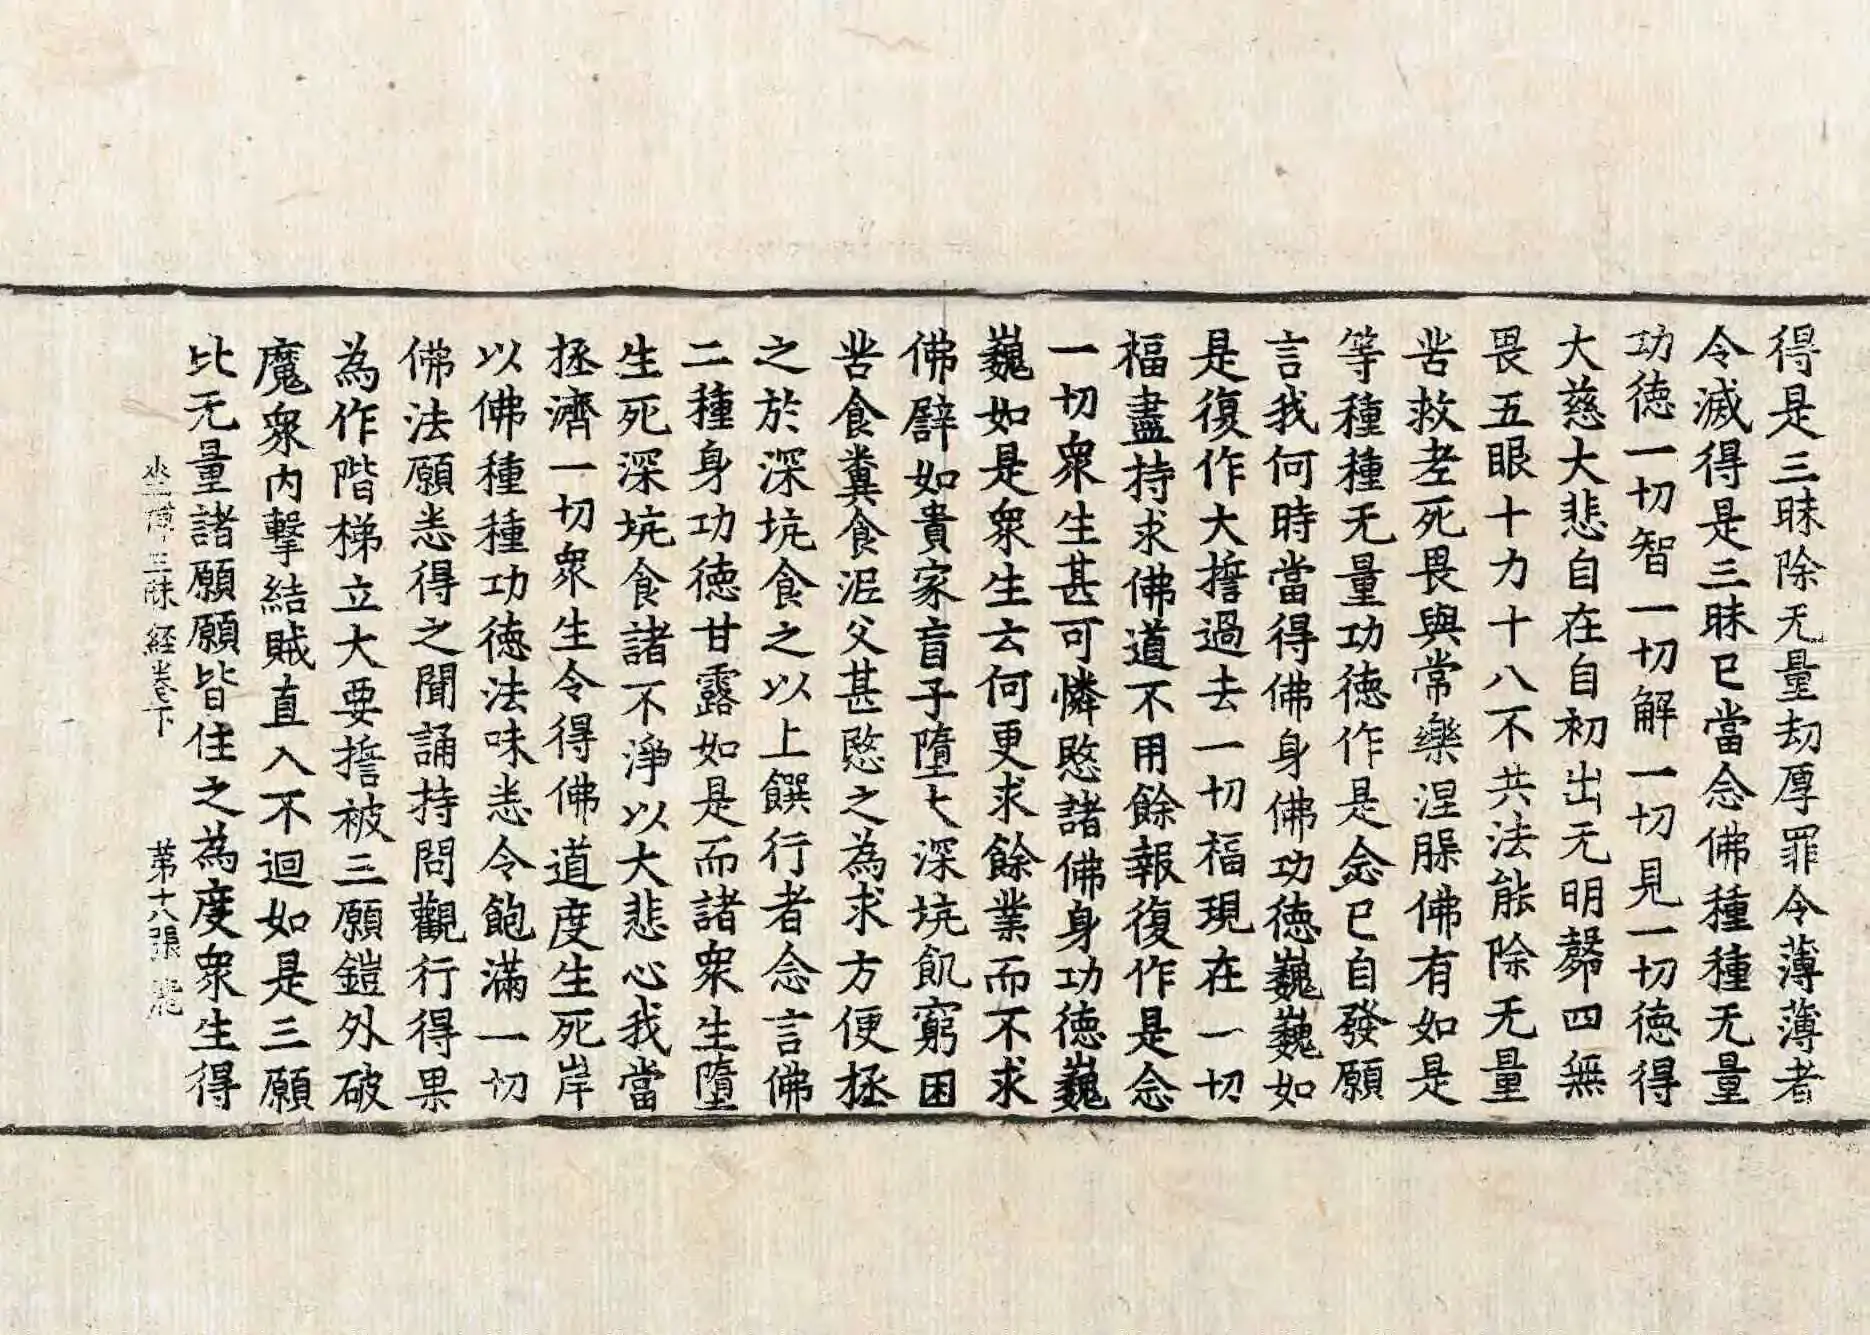 得是三昧除无量劫厚罪令薄薄者
令滅得是三昧已當念佛種種无量
功德一切智一切解一切見一切德得
大慈大悲自在自初出无明㲉四無
畏五眼十力十八不共法能除无量
苦救老死畏與常樂涅槃佛有如是
等種種无量功德作是念已自發願
言我何時當得佛身佛功德巍巍如
是復作大誓過去一切福現在一切
福盡持求佛道不用餘報復作是念
一切衆生甚可憐愍諸佛身功德巍
巍如是衆生云何更求餘業而不求
佛譬如貴家盲子墮大深坑飢窮困
苦食糞食泥父甚愍之為求方便拯
之於深坑食之以上饌行者念言佛
二種身功德甘露如是而諸衆生墮
生死深坑食諸不淨以大悲心我當
拯濟一切衆生令得佛道度生死岸
以佛種種功德法味悉令飽滿一切
佛法願悉得之聞誦持問觀行得果
為作階梯立大要誓被三願鎧外破
魔衆内擊結賊直入不迴如是三願
比无量諸願願皆住之為度衆生得
坐禪三昧經卷下 第十八張 麗